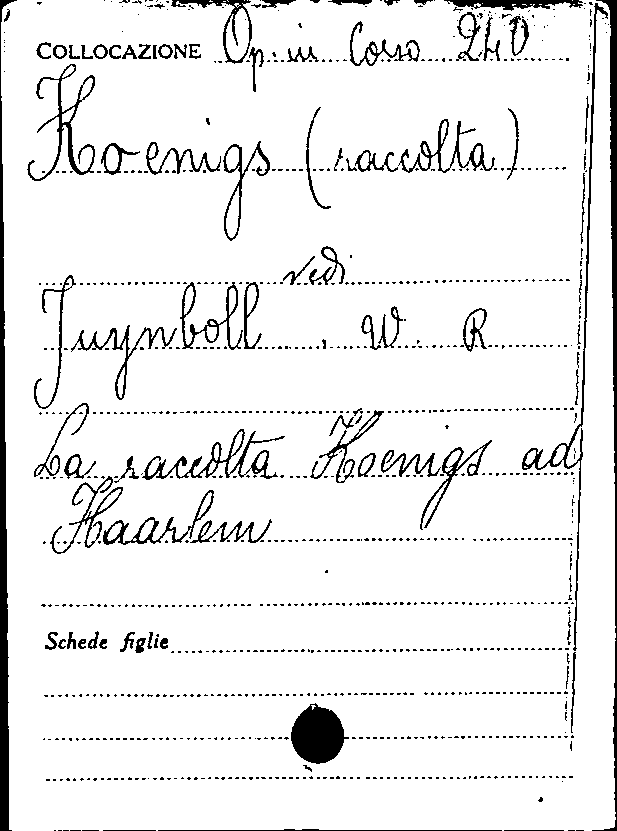 COLLOCAZIONE Op. in Corso 240
Koenigs (raccolta)
vedi
Juynboll. W. R
La raccolta Koenigs ad
Haarlem
Schede figlie